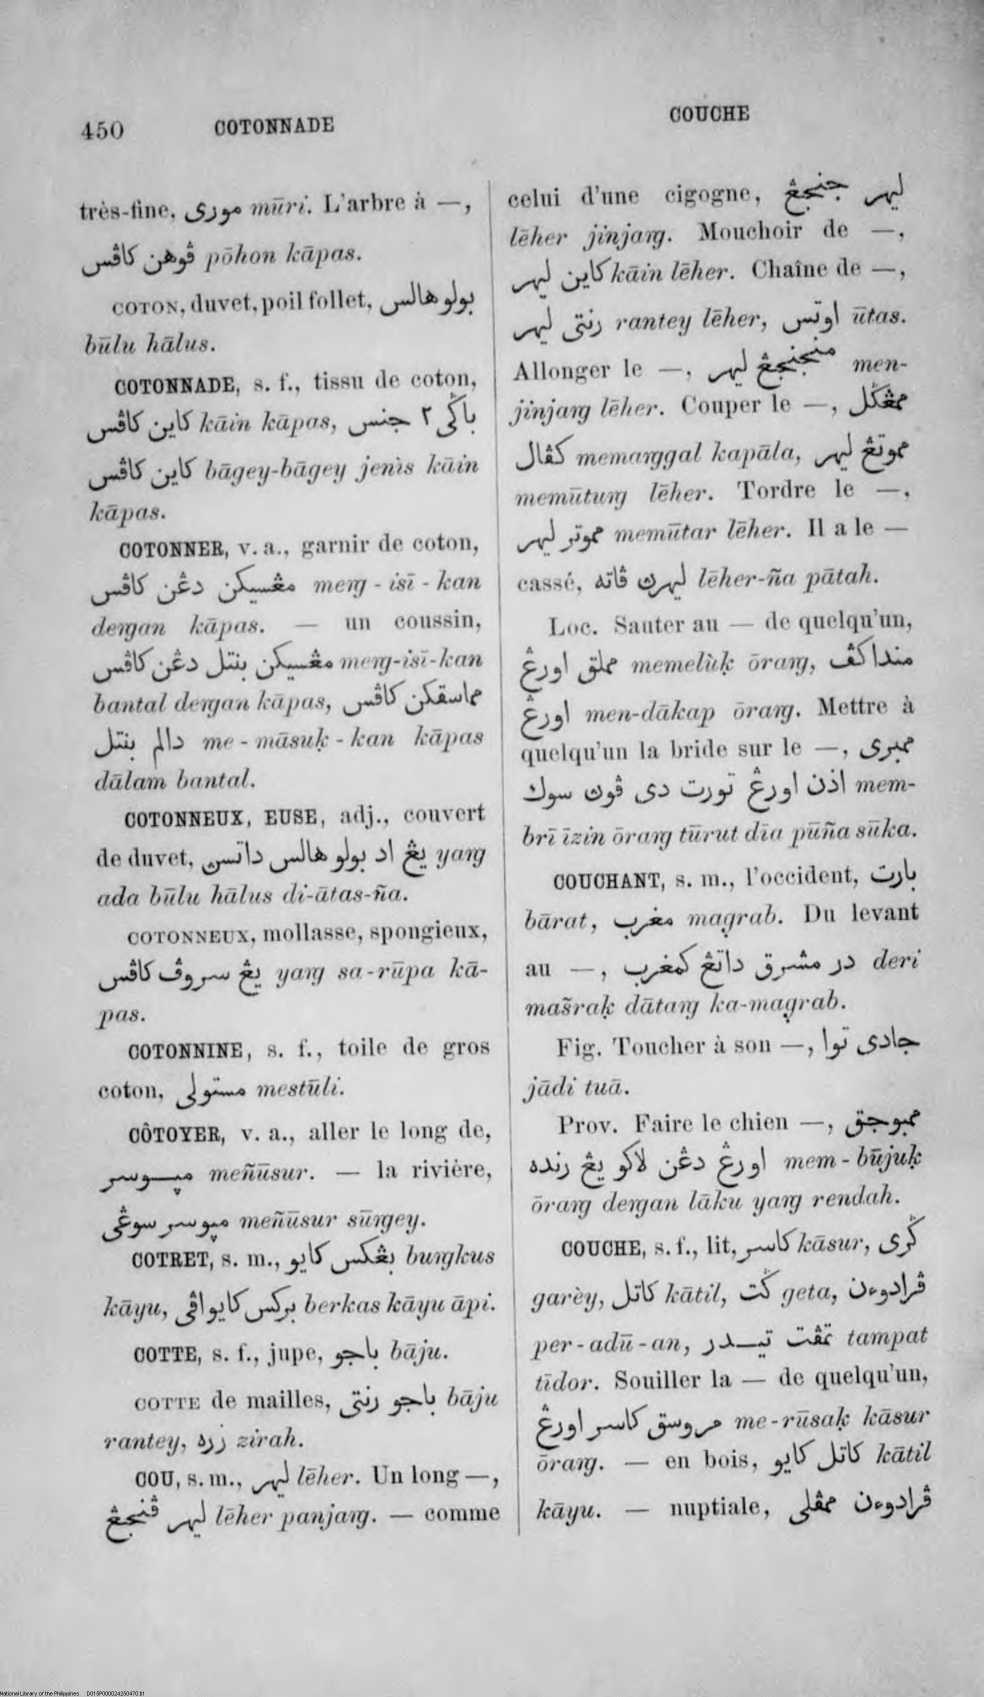 450 COTONNADE
COUCHE
très-fine, موري mūri. L'arbre à —,
ڤوهن كاڤس pōhon kāpas.
COTON, duvet, poil follet, بولو هالس
būlu hālus.
COTONNADE, s. f., tissu de coton,
كاين كاڤس kāin kāpas, باڬي ٢ جنس
كاين كاڤس bāgey-bāgey jenis kāin
kāpas.
COTONNER, v. a., garnir de coton,
مڠيسيكن دڠن كاڤس meŋ-isī-kan
deŋan kāpas. — un coussin,
مڠيسيكن بنتل دڠن كاڤس meŋ-isī-kan
bantal deŋan kāpas, مماسقكن كاڤس
دالم بنتل me-māsuḳ-kan kāpas
dālam bantal.
COTONNEUX, EUSE, adj., couvert
de duvet, يڠ اد بولو هالس داتسڽ yaŋ
ada būlu hālus di-ātas-ña.
COTONNEUX, mollasse, spongieux,
يڠ سروڤ كاڤس yaŋ sa-rūpa kā-
pas.
COTONNINE, s. f., toile de gros
coton, مستولي mestūli.
CÔTOYER, v. a., aller le long de,
مڽوسر meñūsur. — la rivière,
مڽوسر سوڠي meñūsur sūŋey.
COTRET, s. m., بڠكس كايو buŋkus
kāyu, بركس كايو اڤي berkas kāyu āpi.
COTTE, s. f., jupe, باجو bāju.
COTTE de mailles, باجو رنتي bāju
rantey, زره zirah.
COU, s. m., ليهر lēher. Un long —,
ليهر ڤنجڠ lēher panjaŋ. — comme
celui d'une cigogne, ليهر جنجڠ
lēher jinjaŋ. Mouchoir de —,
كاين ليهر kāin lēher. Chaîne de —,
رنتي ليهر rantey lēher, اوتس ūtas.
Allonger le —, منجنجڠ ليهر men-
jinjaŋ lēher. Couper le —, ممڠڬل
كڤال memaŋgal kapāla, مموتڠ ليهر
memūtuŋ lēher. Tordre le —,
مموتر ليهر memūtar lēher. Il a le —
cassé, ليهرڽ ڤاته lēher-ña pātah.
Loc. Sauter au — de quelqu'un,
مملق اورڠ memelùḳ ōraŋ, منداكڤ
اورڠ men-dākap ōraŋ. Mettre à
quelqu'un la bride sur le —, ممبري
اذن اورڠ تورت دي ڤوڽ سوك mem-
brī īzin ōraŋ tūrut dīa pūña sūka.
COUCHANT, s. m., l'occident, بارت
bārat, مغرب maġrab. Du levant
au —, در مشرق داتڠ كمغرب deri
mašraḳ dātaŋ ka-maġrab.
Fig. Toucher à son —, جادي توا
jādi tuā.
Prov. Faire le chien —, ممبوجق
اورڠ دڠن لاكو يڠ رنده mem-būjuḳ
ōraŋ deŋan lāku yaŋ rendah.
COUCHE, s. f., lit, كاسر kāsur, ڬري
garèy, كاتل kātil, ڬت geta, ڤرادوءن
per-adū-an, تمڤت تيدر tampat
tīdor. Souiller la — de quelqu'un,
مروسق كاسر اورڠ me-rūsaḳ kāsur
ōraŋ. — en bois, كاتل كايو kātil
kāyu. — nuptiale, ڤرادوءن ممڤلي
National Library of the Philippines